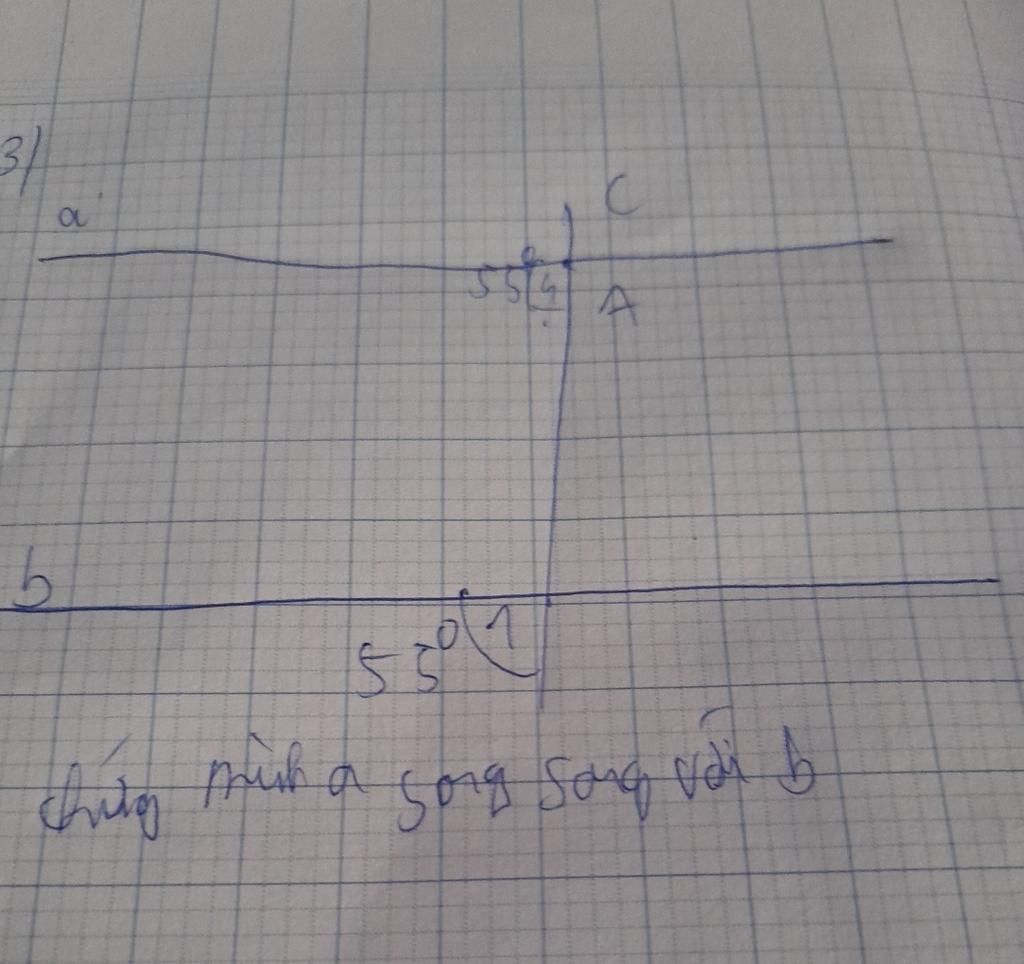 3)
a
C
55° 4
A
b
55° 1
chứng minh a song song với b